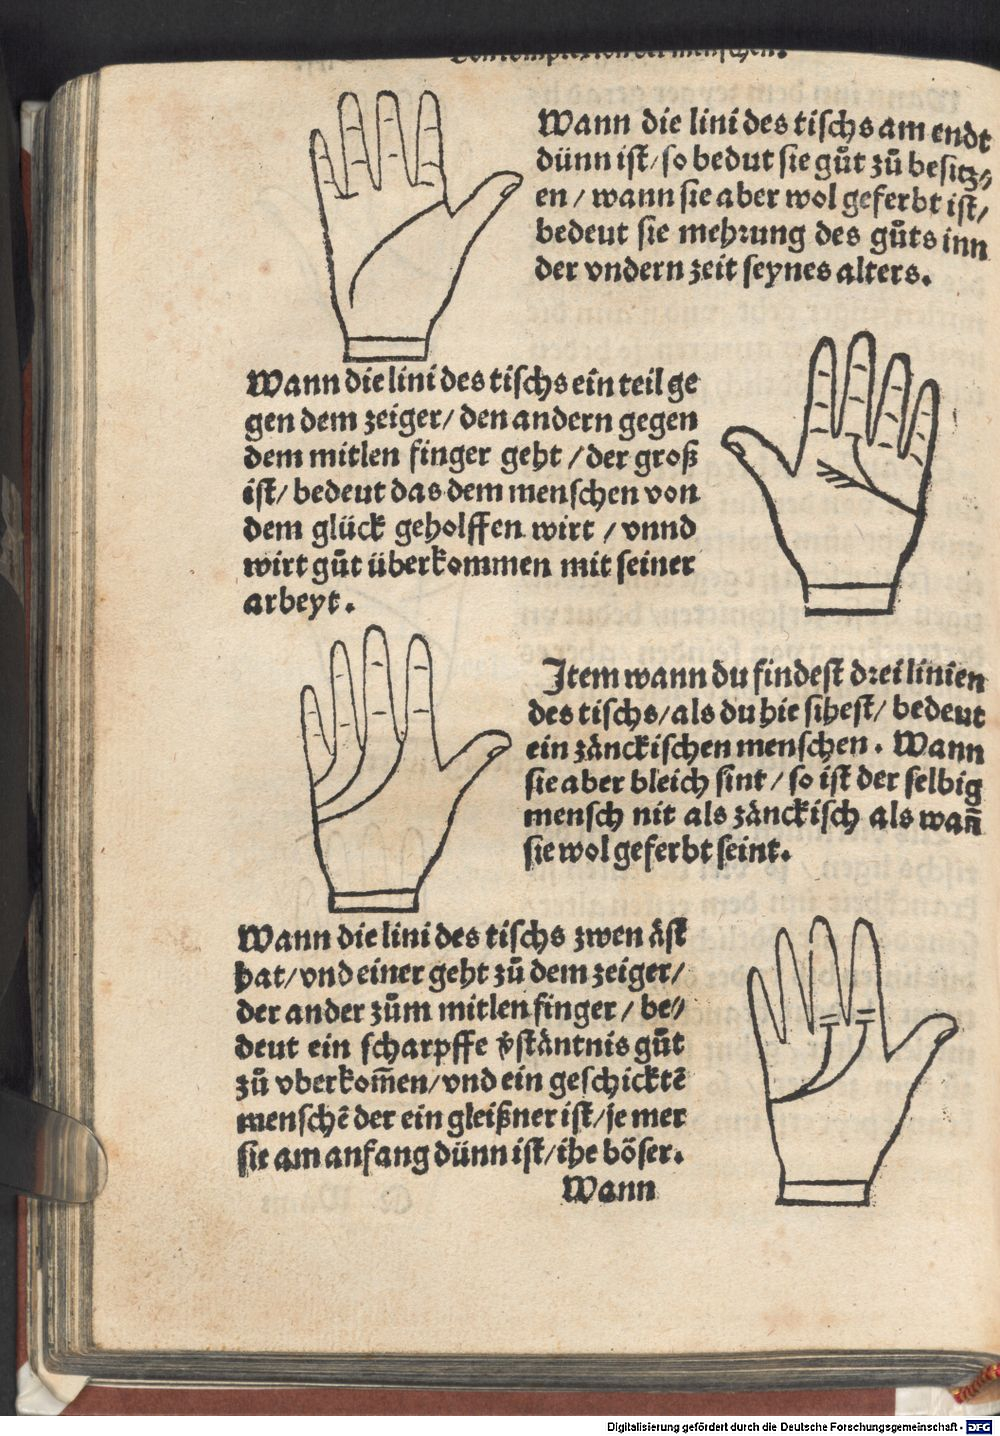 Von complexion der menschen.
Wann die lini des tischs am endt
dünn ist/ so bedut sie gůt zů besitz⸗
en / wann sie aber wol geferbt ist/
bedeut sie mehrung des gůts inn
der vndern zeit seynes alters.
Wann die lini des tischs ein teil ge
gen dem zeiger/ den andern gegen
dem mitlen finger geht / der groß
ist/ bedeut das dem menschen von
dem glück geholffen wirt / vnnd
wirt gůt überkommen mit seiner
arbeyt.
Item wann du findest drei linien
des tischs/ als du hie sihest/ bedeut
ein zänckischen menschen. Wann
sie aber bleich sint / so ist der selbig
mensch nit als zänckisch als wañ
sie wol geferbt seint.
Wann die lini des tischs zwen äst
hat/ vnd einer geht zů dem zeiger/
der ander zům mitlen finger / be⸗
deut ein scharpffe v̈stäntnis gůt
zů vberkom̃en/ vnd ein geschicktẽ
menschẽ der ein gleißner ist/ je mer
sie am anfang dünn ist/ ihe böser.
Wann
Digitalisierung gefördert durch die Deutsche Forschungsgemeinschaft - DFG